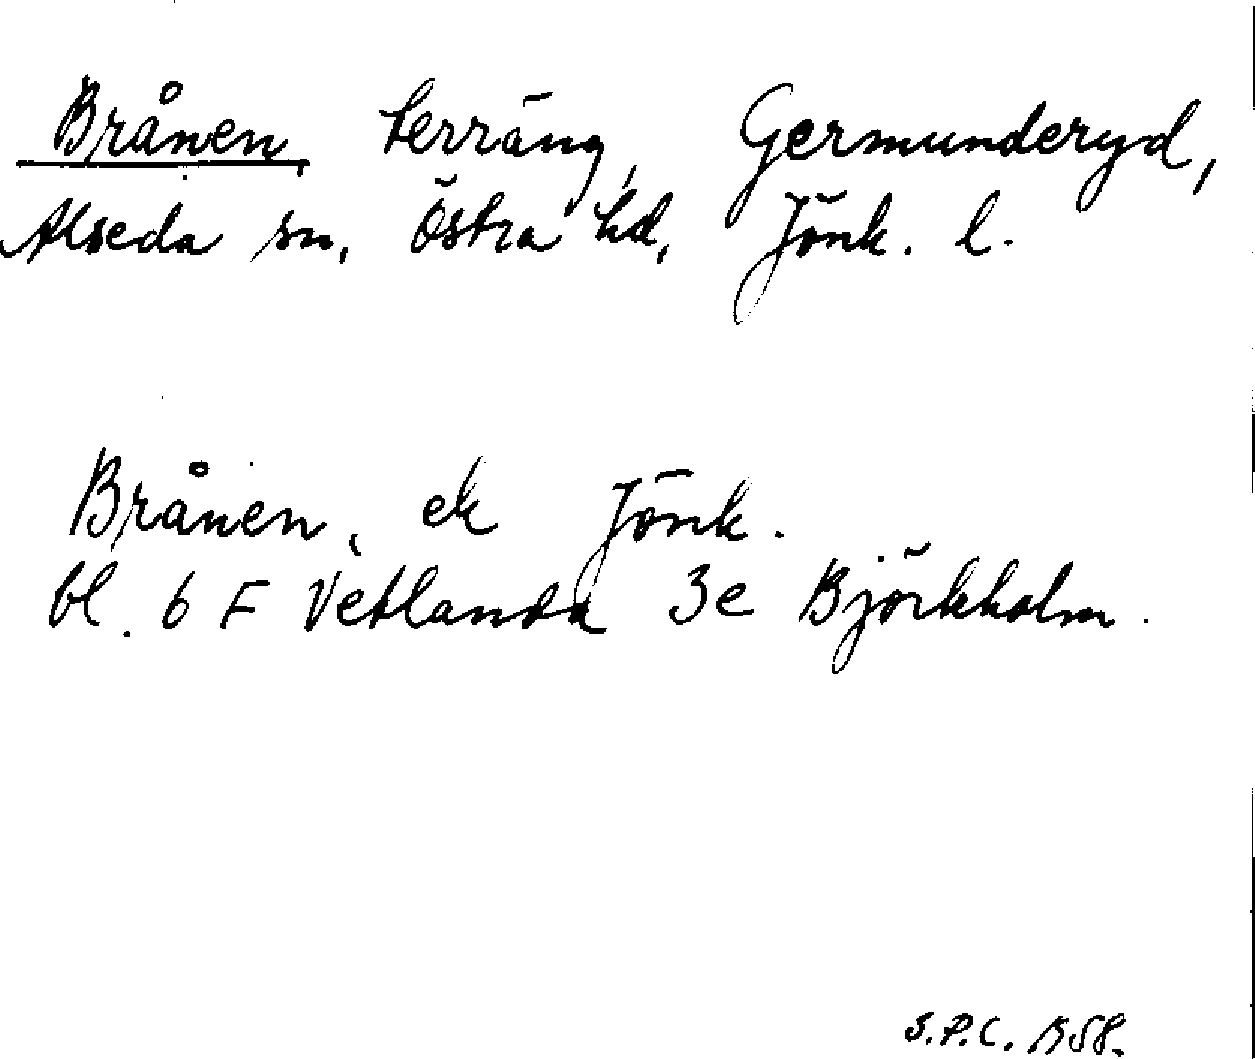 Brånen, terräng, Germunderyd,
Alseda sn, Östra hd, Jönk. l.
Brånen, ek Jönk.
bl. 6 F Vetlanda 3e Björkholm.
S.P.C. 1958.